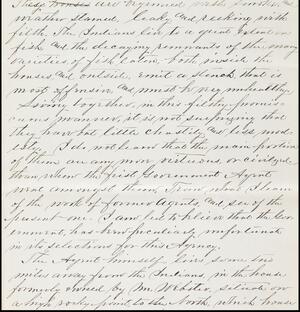 These houses are begrimed with smoke, and
weather stained, leaky and reeking with
filth. The Indians live to a great extent on
fish and the decaying remnants of the many
varieties of fish eaten, both inside the
houses and outside, emit a stench that is
most offensive and must be very unhealthy.
Living together, in this filthy promis-
cuous manner, it is not surprising that
they have but little chastity and less mod-
esty. I do not learn that the main portion
of them are any more virtuous, or civilized
than when the first Government Agent
went amongst them. From what I learn
of the work of former Agents and see of the
present one I am led to believe that the Gov-
ernment, has been peculiarly unfortunate
in its selections for this Agency.
The Agent himself lives some six
miles away from the Indians, in the house
formerly owned by Mr. Webster, situate on
a high rocky point, to the North, which house